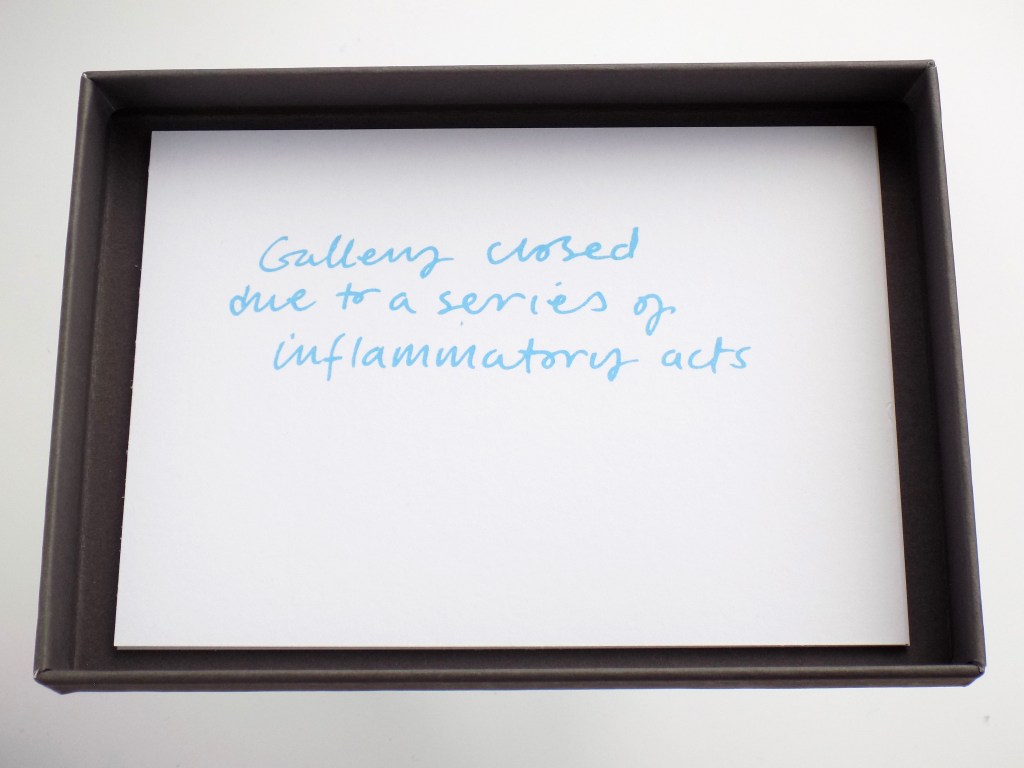 Gallery closed
due to a series of
inflammatory acts